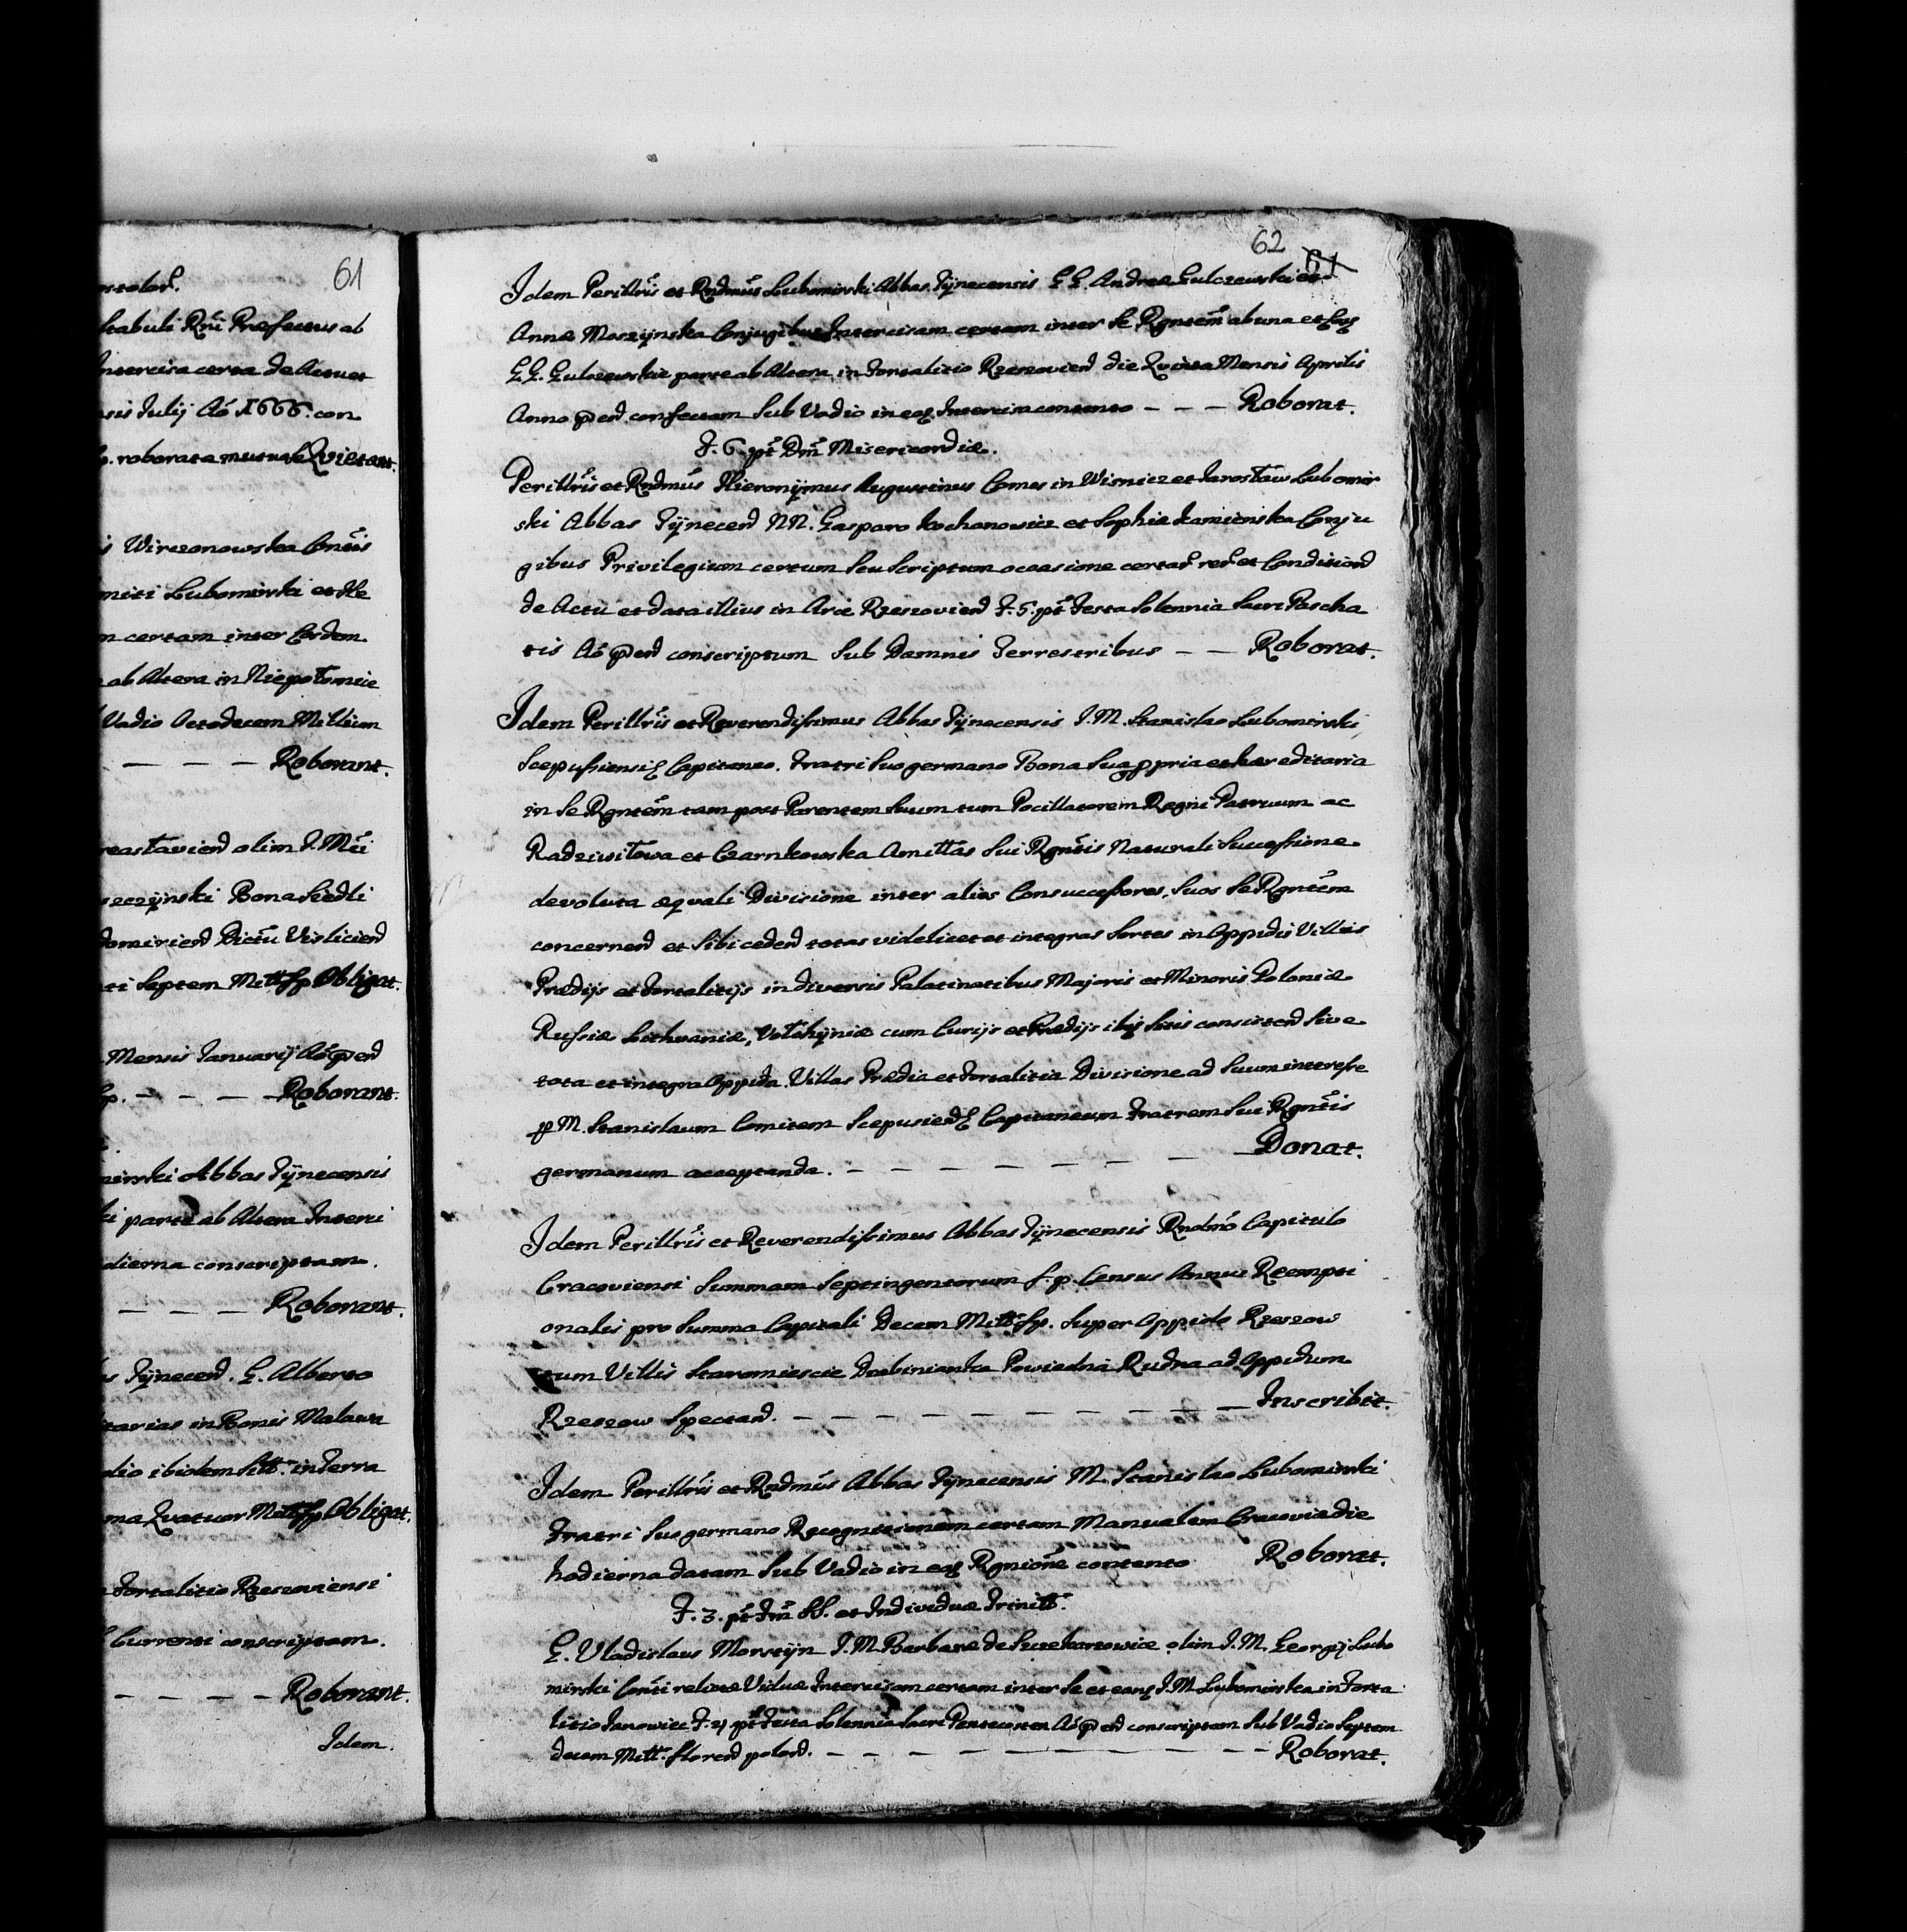 61
ntalor.
stabuli Rni Praefectus ab
Intercisa certa de Actu et
sis Julij Ao 1666. con
roborata mutuo Quietant.
Wirzonowska Consis
miti Lubomirski et He
m certam inter Eosdem
ab Altera in Niepołomice
Vadio Octodecem Millium
— — — Roborant.
reastavien olim J. Mci
szczynski Bona Siedli
domirien Dictu Vislicien
ti Septem Mill fp Obligat.
Mensis Januarij Ao psen
fp. — — — Roborant.
mirski Abbas Tÿnecensis
ki parte ab Altera Interci
dierna conscriptam.
— — — Roborant.
s Tÿnecen. G. Alberto
tarias in Bonis Malawa
dio ibidem sitt. in Terra
ma Quatuor Mill fp Obligat.
Fortalitio Rzeszoviensi
Currenti conscriptam.
— — — — Roborant.
Idem.
62 61
Idem Perillris et Rndmus Lubomirski Abbas Tÿnecensis G G. Andreae Gulczewski et
Annae Moszÿnska Conjugibus Intercisam certam inter Se Rgntem ab una et Eosq
G G. Gulczewskie parte ab Altera in Fortalitio Rzeszovien die Quinta Mensis Aprilis
Anno psen confectam sub Vadio in eaq Intercisa contento — — — Roborat.
F. 6. pt Dm Misericordiae.
Perillris et Rndmus Hieronÿmus Augustinus Comes in Wisnicz et Jarosław Lubomir
ski Abbas Tÿnecen NN. Gasparo Kochanowicz et Sophiae Kamienska Conju
gibus Privilegium certum seu Scriptum occasione certar rer et Condition
de Actu et data illius in Arce Rzeszovien F. 5. pt Festa Solennia Sacri Pascha
tis Ao psen conscriptum sub Damnis Terrestribus — — Roborat.
Idem Perillris et Reverendissimus Abbas Tÿnecensis J. M. Stanislao Lubomirski,
Scepusiensi Capitaneo. Fratri suo germano Bona sua ppria et haereditaria
in Se Rgntem tam post Parentem suum tum Pocillatorem Regni Patruum ac
Radziwiłowa et Czarnkowska Amittas sui Rgntis Naturali Successione
devoluta aequali Divisione inter alios Consuccessores suos Se Rgntem
concernen et sibi ceden totas videlicet et integras sortes in Oppidis Villis
Praedijs et Fortalitijs in diversis Palatinatibus Majoris et Minoris Poloniae
Russiae Lithuaniae, Wołhÿniae cum Curijs et Praedijs ibiq sitis consisten sive
tota et integra Oppida Villas Praedia et Fortalitia Divisione ad suum interesse
p M. Stanislaum Comitem Scepusien Capitaneum Fratrem sui Rgntis
germanum acceptanda. — — — — — — — Donat.
Idem Perillris et Reverendissimus Abbas Tÿnecensis Rndmo Capitulo
Cracoviensi Summam Septingentorum f. p. Census Annui Reempti
onalis pro Summa Capitali Decem Mill. fp. super Oppido Rzeszow
cum Villis Staromiescie Drabinianka Powiedna Rudna ad Oppidum
Rzeszow Spectan. — — — — — — — — — Inscribit.
Idem Perillris et Rndmus Abbas Tÿnecensis M. Stanislao Lubomirski
Fratri suo germano Recognitionem certam Manualem Cracoviae die
hodierna datam sub Vadio in eaq Rgnione contento Roborat.
F. 3. pt Fm SS. et Individuae Trinitt.
G. Vladislaus Morstÿn J. M. Barbarae de Szczekarzowice olim J. M. Georgij Lubo
mirski Conti relictae Viduae Intercisam certam inter Se et eanq J. M. Lubomirska in Forta
litio Janowiec F. 4 pt Festa Solennia Sacri Pentecosten Ao psen conscriptam sub Vadio Septem
decem Mill. floren polon. — — — — — — — — Roborat.